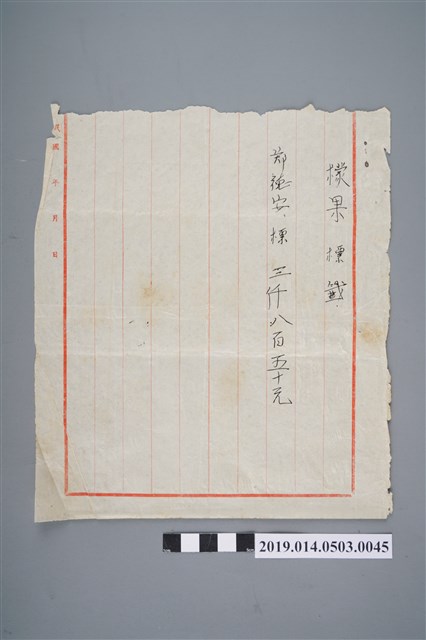 檬果標籤
鄭德安標 三仟八百五十元
民國 年 月 日
2019.014.0503.0045